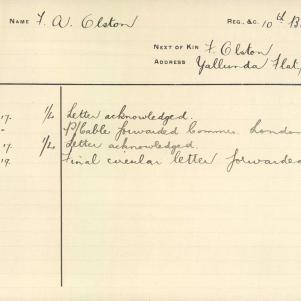 NAME F. A. Olston REG., &C. 10th B
NEXT OF KIN F. Olston
ADDRESS Yallunda Flat,
17. 1/L Letter acknowledged.
" P/Cable forwarded Commr. London
17. 1/L Letter acknowledged.
19. Final circular letter forwarded